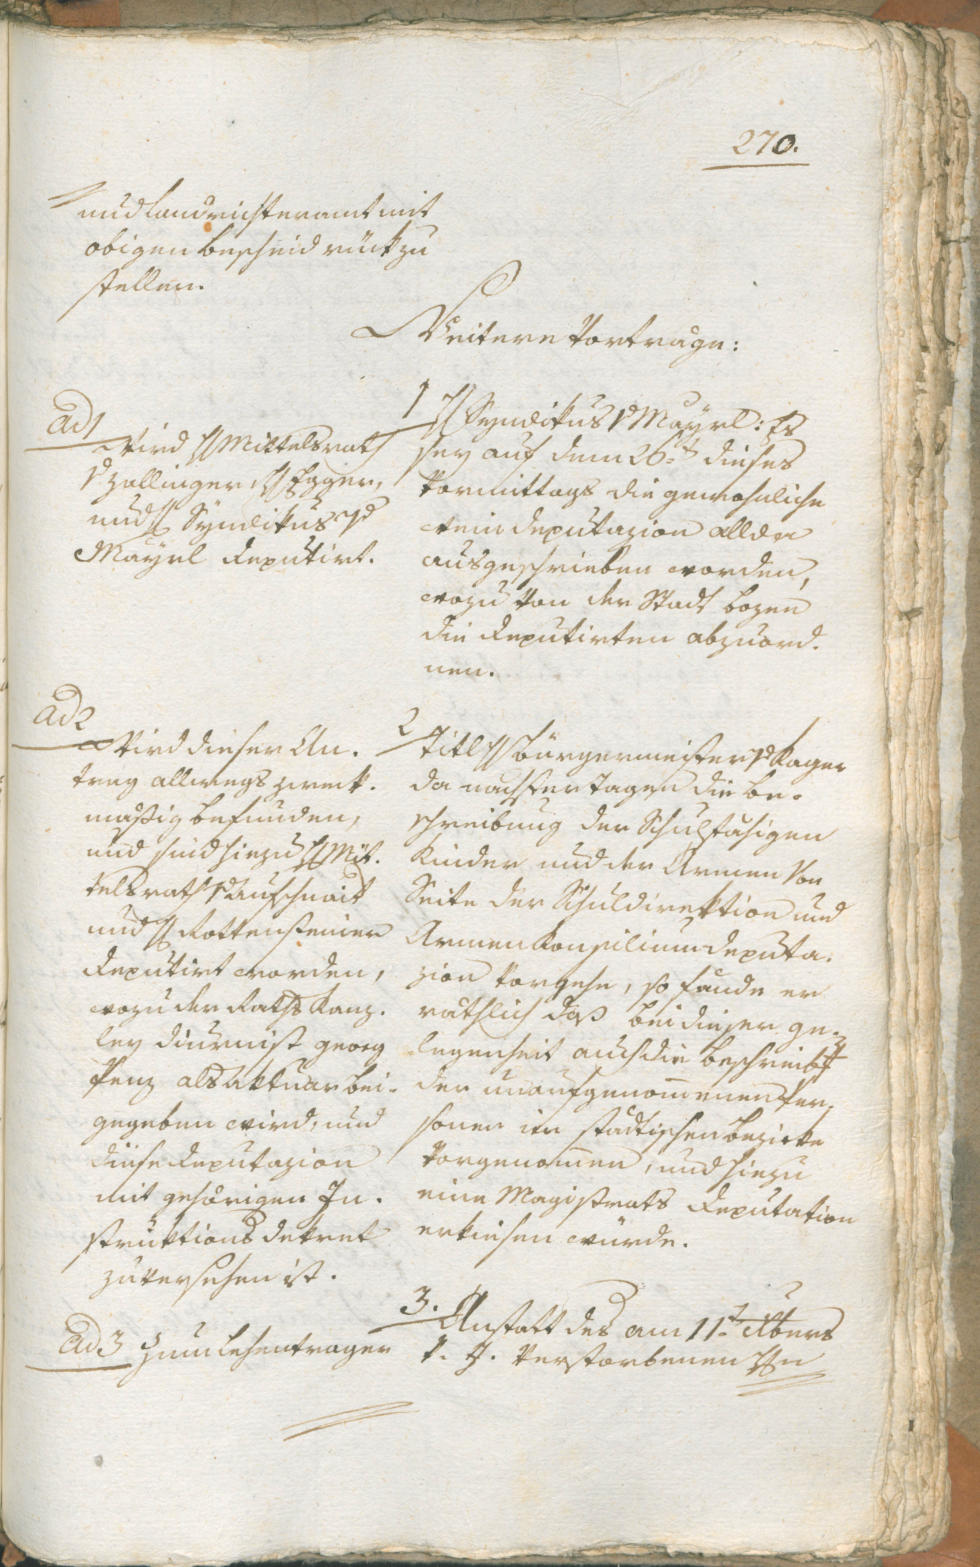 270.
und Landrichteramt mit
obigen Bescheid rückzu
stellen.
Weitere Vortrage:
ad 1
Wird H Mittelsrath
v Zallinger, H Egger,
und H Syndikus v
Mayrl deputirt.
1 H Syndikus v Mayrl: Es
sey auf dem 26.ten dieses
Vormittags die gewohnliche
deputazion allda
ausgeschrieben worden,
wozu von der Stadt Bozen
die Deputirten abzuord.
nen.
ad 2
Wird dieser An.
trag allwegs zweck.
mäßig befunden,
und sind hiezu H Mit.
telsrath v Aufschnait
und H Rottensteiner
deputirt worden,
wozu der Raths Kanz.
ley Diurnist Georg
Penz als Aktuar bei.
gegeben wird, und
diese Deputazion
mit gehörigen In.
struktions dekret
zu versehen ist.
2 Titl H Bürgermeister v Kager
da nachster Tagen die Be.
schreibung der Schulfähigen
Kinder und der Armen von
Seite der Schuldirektion und
Armen Konsilium deputa.
zion vorgehe, so fände er
räthlich daß bei dieser ge.
legenheit auch die Beschreibg
der unaufgenommenen Per.
sonen im städtischen Bezirke
vorgenommen, und hiezu
eine Magistrats Deputation
erkiesen würde.
ad 3 Zum Lehentrager
3. Anstatt des am 11.t Xbers
v. J. verstorbenen Hn